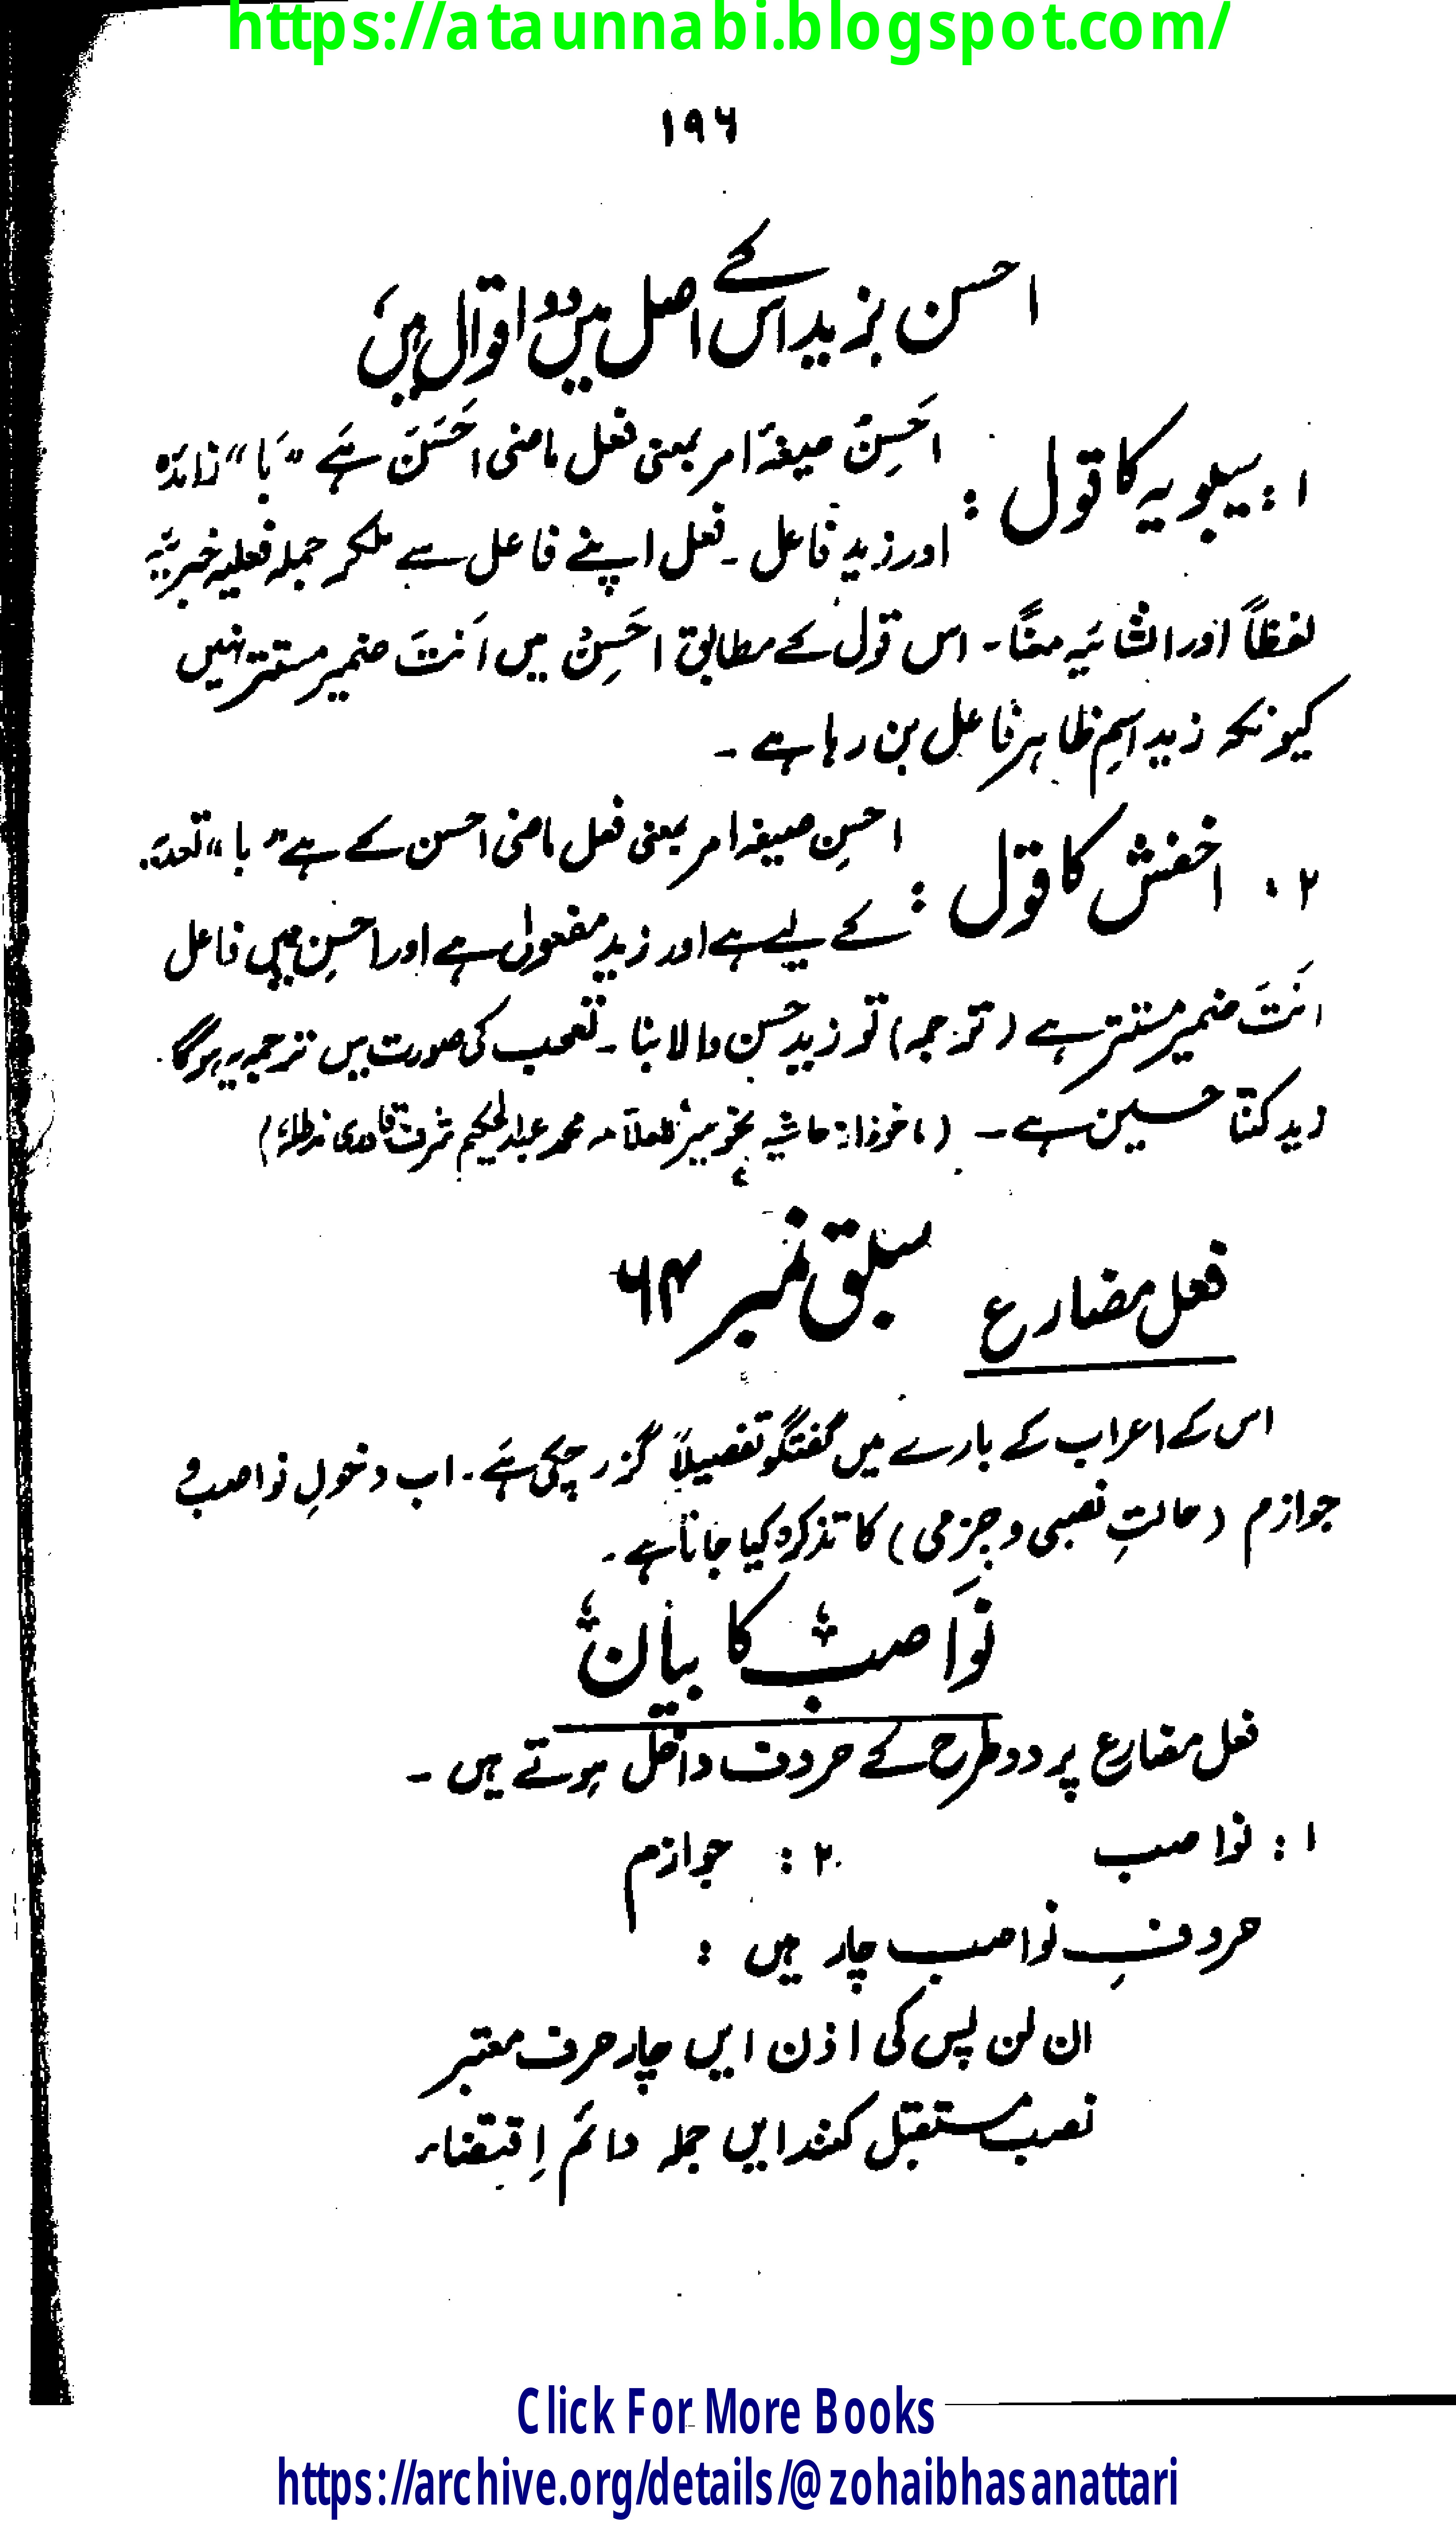 https://ataunnabi.blogspot.com/
۱۹۶
احسن بزید اس کے اصل میں دو اقوال ہیں
۱: سیبویہ کا قول : اَحْسِنْ صیغۂ امر بمعنی فعل ماضی اَحْسَنَ ہے "بَا" زائدہ
اور زید فاعل ۔ فعل اپنے فاعل سے ملکر جملہ فعلیہ خبریّہ
لفظاً اور انشائیہ معنًا ۔ اس قول کے مطابق اَحْسِنْ میں اَنتَ ضمیر مستتر نہیں
کیونکہ زید اسمِ ظاہر فاعل بن رہا ہے ۔
۲ : اخفش کا قول : احسِن صیغہ امر بمعنی فعل ماضی احسن کے ہے "با" تعدیہ
کے لیے ہے اور زید مفعول ہے اور احسِن میں فاعل
انتَ ضمیر مستتر ہے (ترجمہ) تو زید حسن والا بنا ۔ تعجب کی صورت میں ترجمہ یہ ہوگا
زید کتنا حسین ہے ۔ (ماخوذ از حاشیہ نحو میر للعلامہ محمد عبدالحکیم شرف قادری مدظلہٗ)
سبق نمبر ۶۴
فعل مضارع
اس کے اعراب کے بارے میں گفتگو تفصیلاً گزر چکی ہے ۔ اب دخولِ نواصب و
جوازم (حالتِ نصبی و جزمی) کا تذکرہ کیا جاتا ہے ۔
نَوَاصب کا بیان
فعل مضارع پر دو طرح کے حروف داخل ہوتے ہیں ۔
۱ : نواصب ۲ : جوازم
حروفِ نواصب چار ہیں :
ان لن پس کی اذن ایں چار حرف معتبر
نصب مستقبل کنند ایں جملہ دائم اِقتضاء
Click For More Books
https://archive.org/details/@zohaibhasanattari